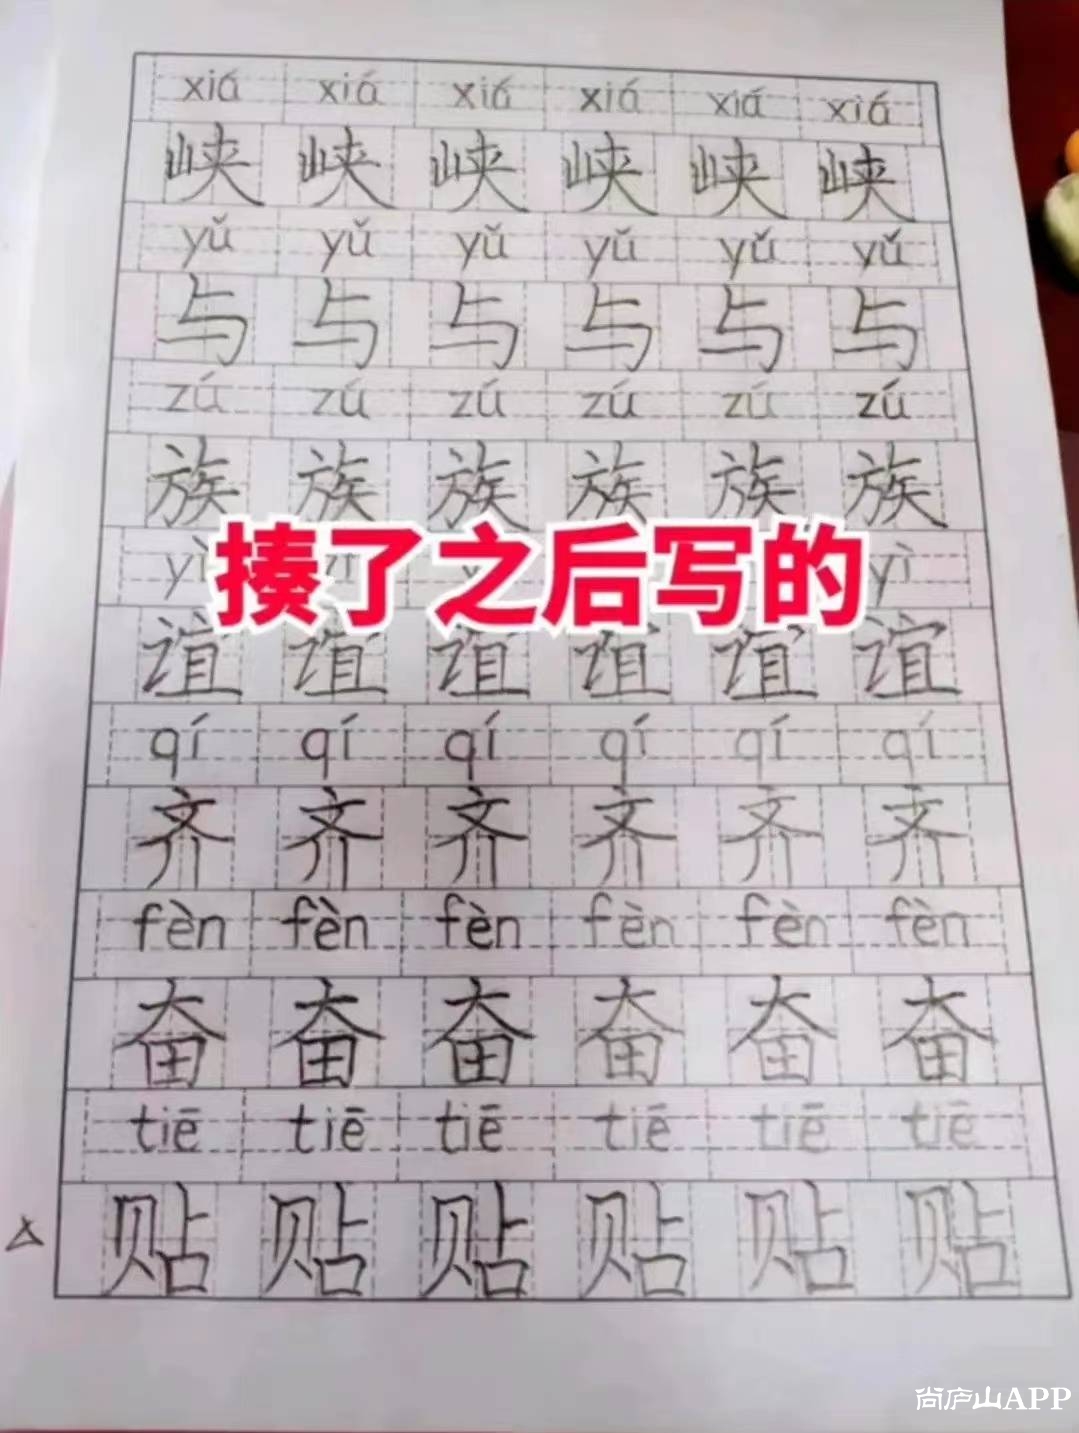 xiá xiá xiá xiá xiá xiá
峡 峡 峡 峡 峡 峡
yǔ yǔ yǔ yǔ yǔ yǔ
与 与 与 与 与 与
zú zú zú zú zú zú
族 族 族 族 族 族
yì yì
揍了之后写的
谊 谊 谊 谊 谊 谊
qí qí qí qí qí qí
齐 齐 齐 齐 齐 齐
fèn fèn fèn fèn fèn fèn
奋 奋 奋 奋 奋 奋
tiē tiē tiē tiē tiē tiē
贴 贴 贴 贴 贴 贴
尚庐山APP